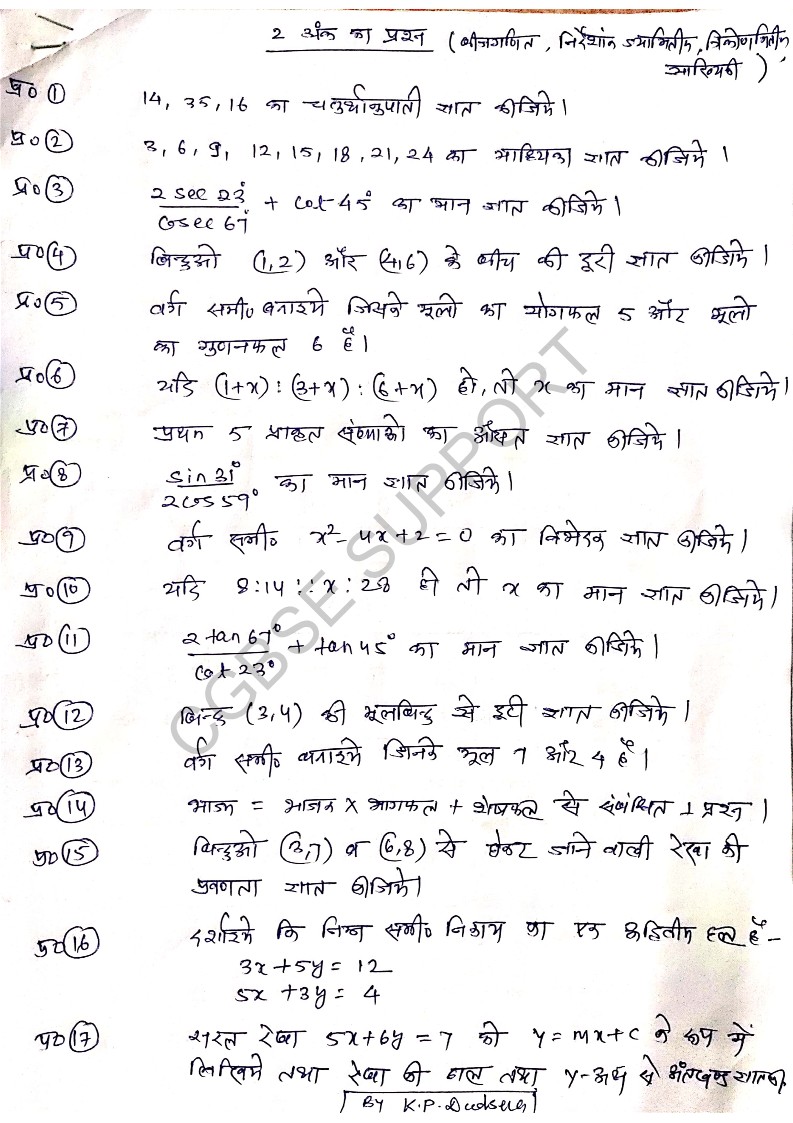 2 अंक का प्रश्न (बीजगणित, निर्देशांक ज्यामितीय, त्रिकोणमितीय
सांख्यिकी)
प्र0 1 14, 35, 16 का चतुर्थानुपाती ज्ञात कीजिये।
प्र0 2 3, 6, 9, 12, 15, 18, 21, 24 का माध्यिका ज्ञात कीजिये।
प्र0 3 2 sec 23° / cosec 67° + cot 45° का मान ज्ञात कीजिये।
प्र0 4 बिन्दुओ (1,2) और (4,6) के बीच की दूरी ज्ञात कीजिये।
प्र0 5 वर्ग समी० बनाइये जिसके मूलो का योगफल 5 और मूलो
का गुणनफल 6 है।
प्र0 6 यदि (1+x) : (3+x) : (6+x) हो, तो x का मान ज्ञात कीजिये।
प्र0 7 प्रथम 5 प्राकृत संख्याओ का औसत ज्ञात कीजिये।
प्र0 8 sin 31° / 2cos 59° का मान ज्ञात कीजिये।
प्र0 9 वर्ग समी० x² - 4x + 2 = 0 का विभेदक ज्ञात कीजिये।
प्र0 10 यदि 8 : 14 :: x : 28 हो तो x का मान ज्ञात कीजिये।
प्र0 11 2 tan 67° / cot 23° + tan 45° का मान ज्ञात कीजिये।
प्र0 12 बिन्दु (3,4) की मूलबिन्दु से दूरी ज्ञात कीजिये।
प्र0 13 वर्ग समी० बनाइये जिनके मूल 7 और 4 है।
प्र0 14 भाज्य = भाजक × भागफल + शेषफल से संबंधित 1 प्रश्न।
प्र0 15 बिन्दुओ (3,7) व (6,8) से होकर जाने वाली रेखा की
प्रवणता ज्ञात कीजिये।
प्र0 16 दर्शाइये कि निम्न समी० निकाय का एक अद्वितीय हल है -
3x + 5y = 12
5x + 3y = 4
प्र0 17 सरल रेखा 5x + 6y = 7 को y = mx + c के रूप में
लिखिये तथा रेखा की ढाल तथा y-अक्ष से अंतःखण्ड
BY K.P.
CGBSE SUPPORT